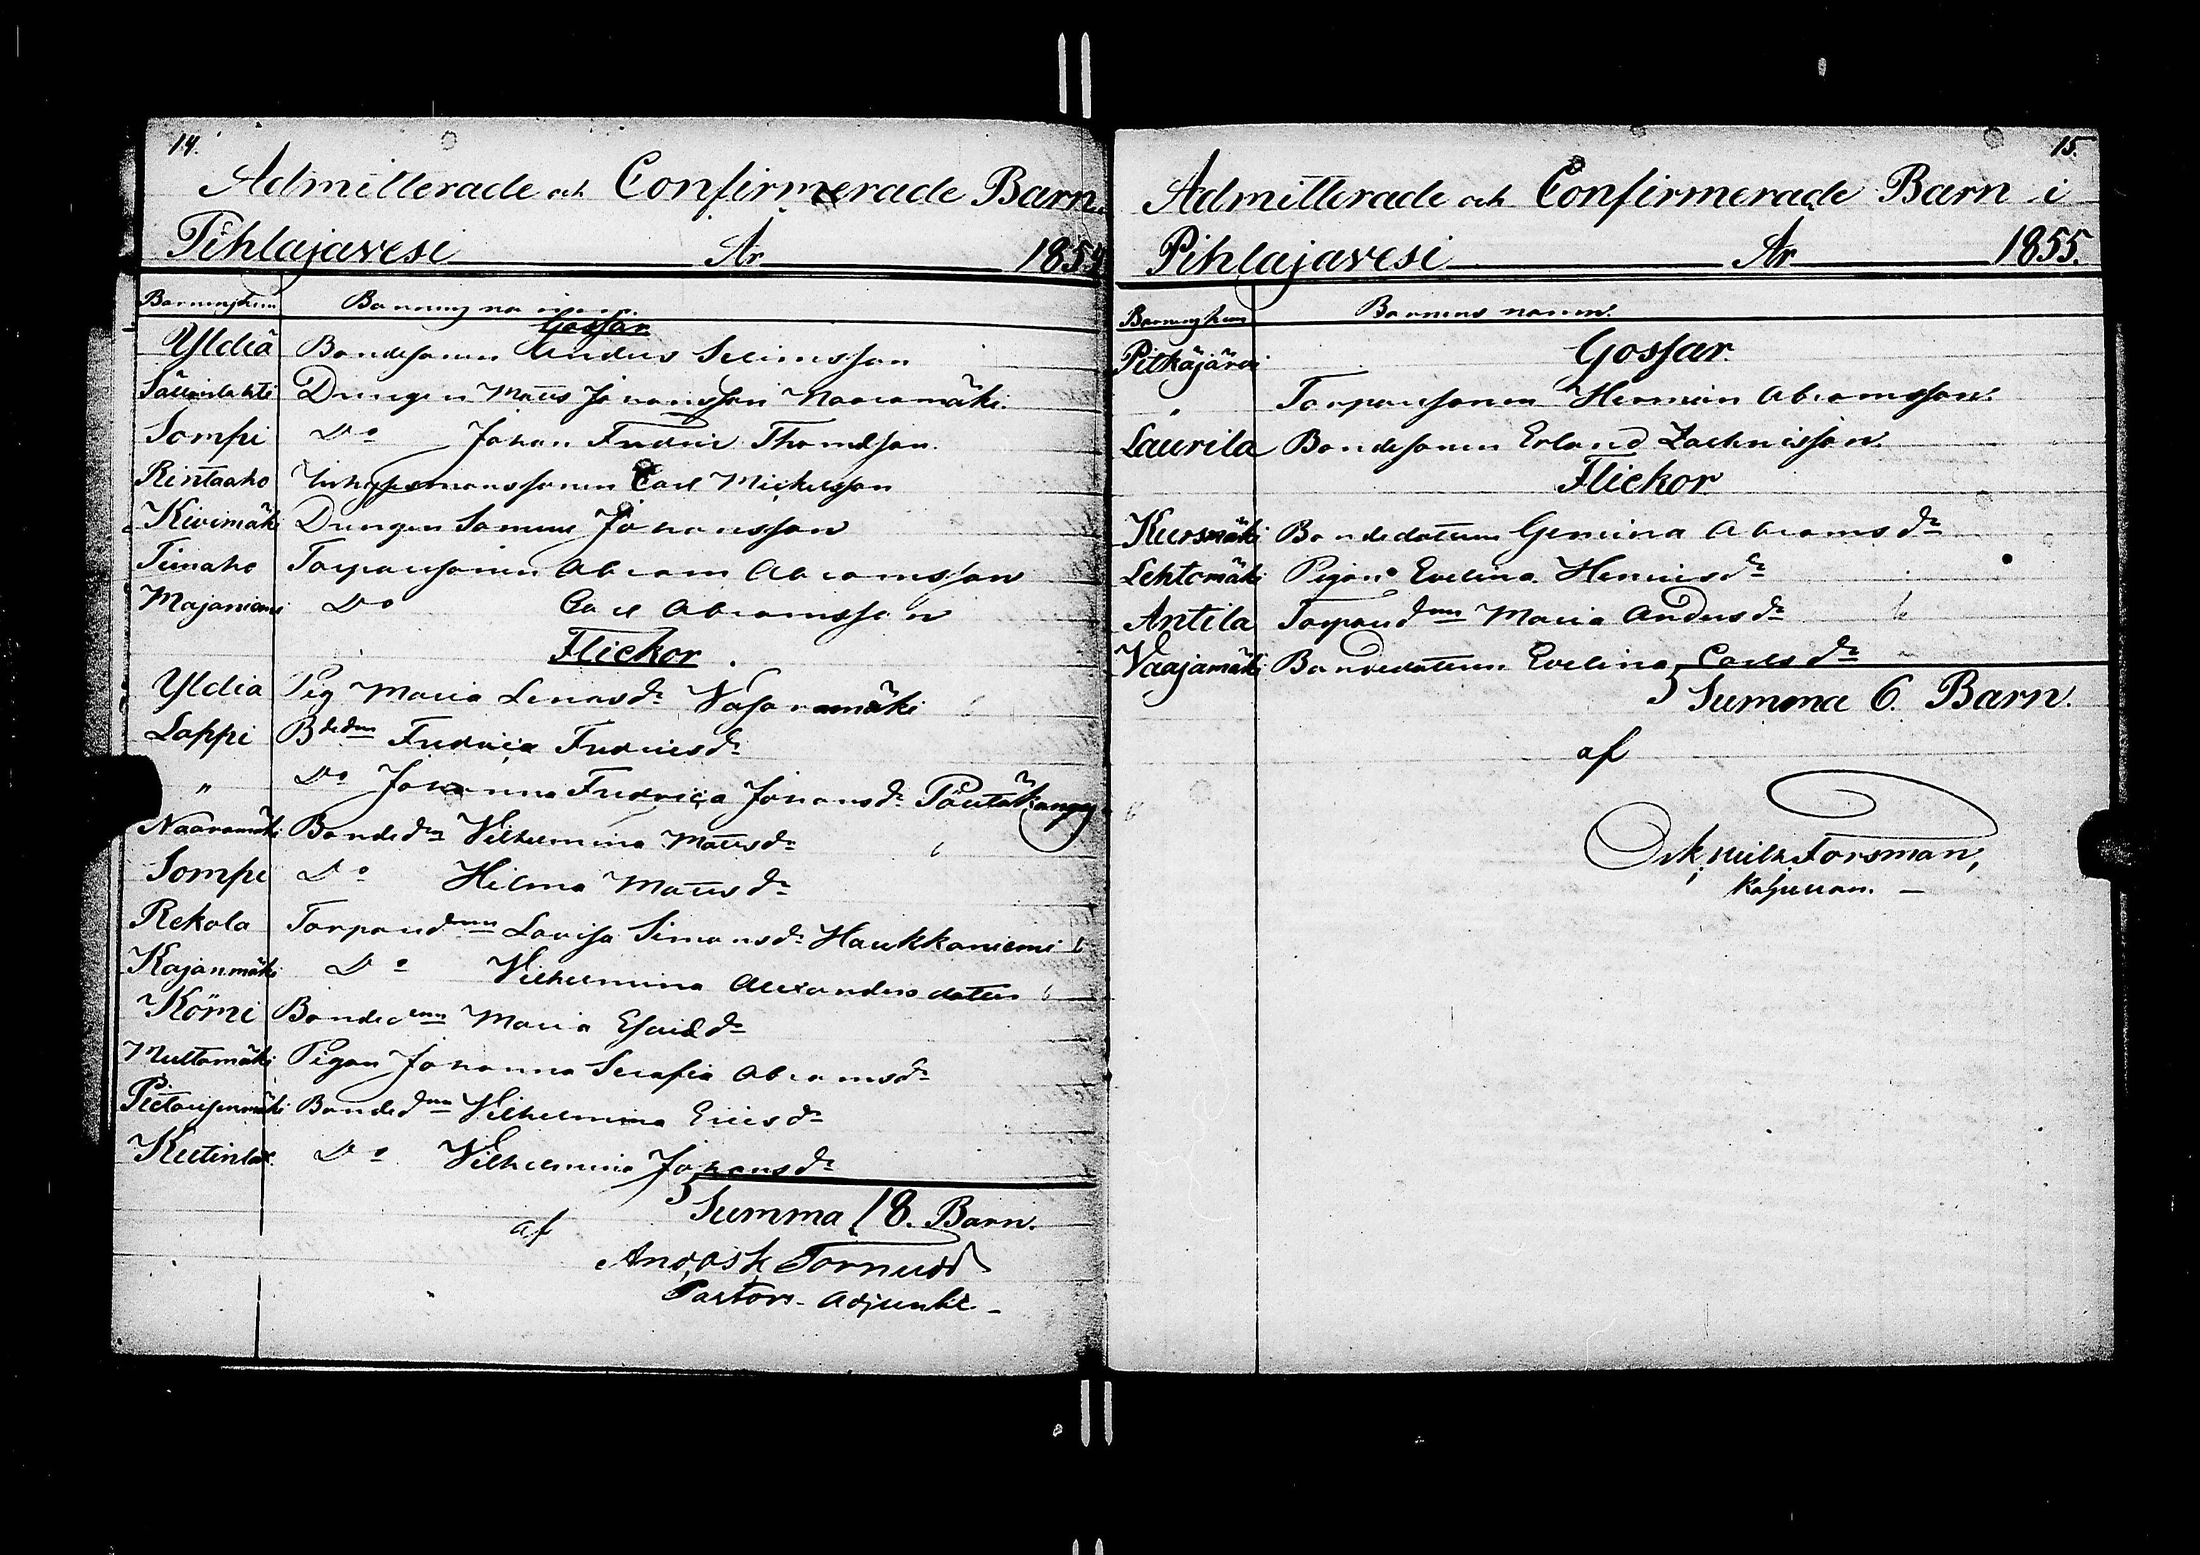 14.
Admitterade och Confirmerade Barn
Pihlajavesi År 1854
Barnens hem Barnens namn
Gossar
Yldiä Bondesonen Anders Selimsson
Drengen Matts Johansson Naaramäki.
Sompi Do Johan Fredric Thomasson.
Rintaaho Carl Mickelsson
Kivimäki Drengen Samuel Johansson
Timaho Torparesonen Abram Abramsson
Majaniemi Do Carl Abramsson
Flickor.
Yldia Pig Maria Lenasdr Vasaramäki
Lappi Bdedrn Fredrica Fredricsdr
" Do Johanna Fredrica Johansdr
Naaramäki Bondedrn Vilhelmina Mattsdr
Sompi Do Hilma Mattsdr
Rekola Torparedrn Lovisa Simonsdr Haukkaniemi
Kajanmäki Do Vilhelmina Alexandersdotter
Körni Bondedrn Maria Esaiædr
Multamäki Pigan Johanna Serafia Abramsdr
Bondedrn Vilhelmina Ericsdr
Do Vilhelmina Johansdr
Summa 18. Barn.
af
And. Osk Tornudd
Pastors-Adjunkt-
15.
Admitterade och Confirmerade Barn i
Pihlajavesi År 1855.
Barnens hem Barnens namn.
Gossar.
Pitkäjärvi
" Torparesonen Herman Abramsson.
Laurila Bondesonen Erland Zachrisson.
Flickor
Bondedottren Gemina Abramsdr
Lehtomäki Pigan Evelina Henricsdr
Antila Torparedrn Maria Andersdr
Vaajamäki Bondedottren Evelina Carlsdr
Summa 6. Barn.
af
Osk. Wilh. Forsman,
Kapellan. -